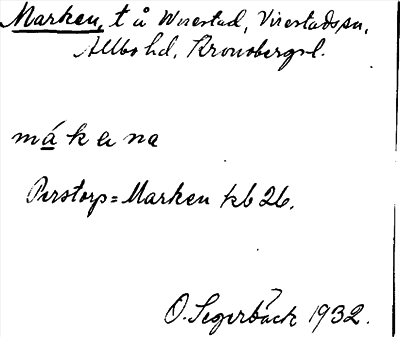 Marken, t å Virestad, Virestads sn,
Allbo hd, Kronobergs l.
mákɐna
Perstorp=Marken kb 26.
O. Segerbäck 1932.